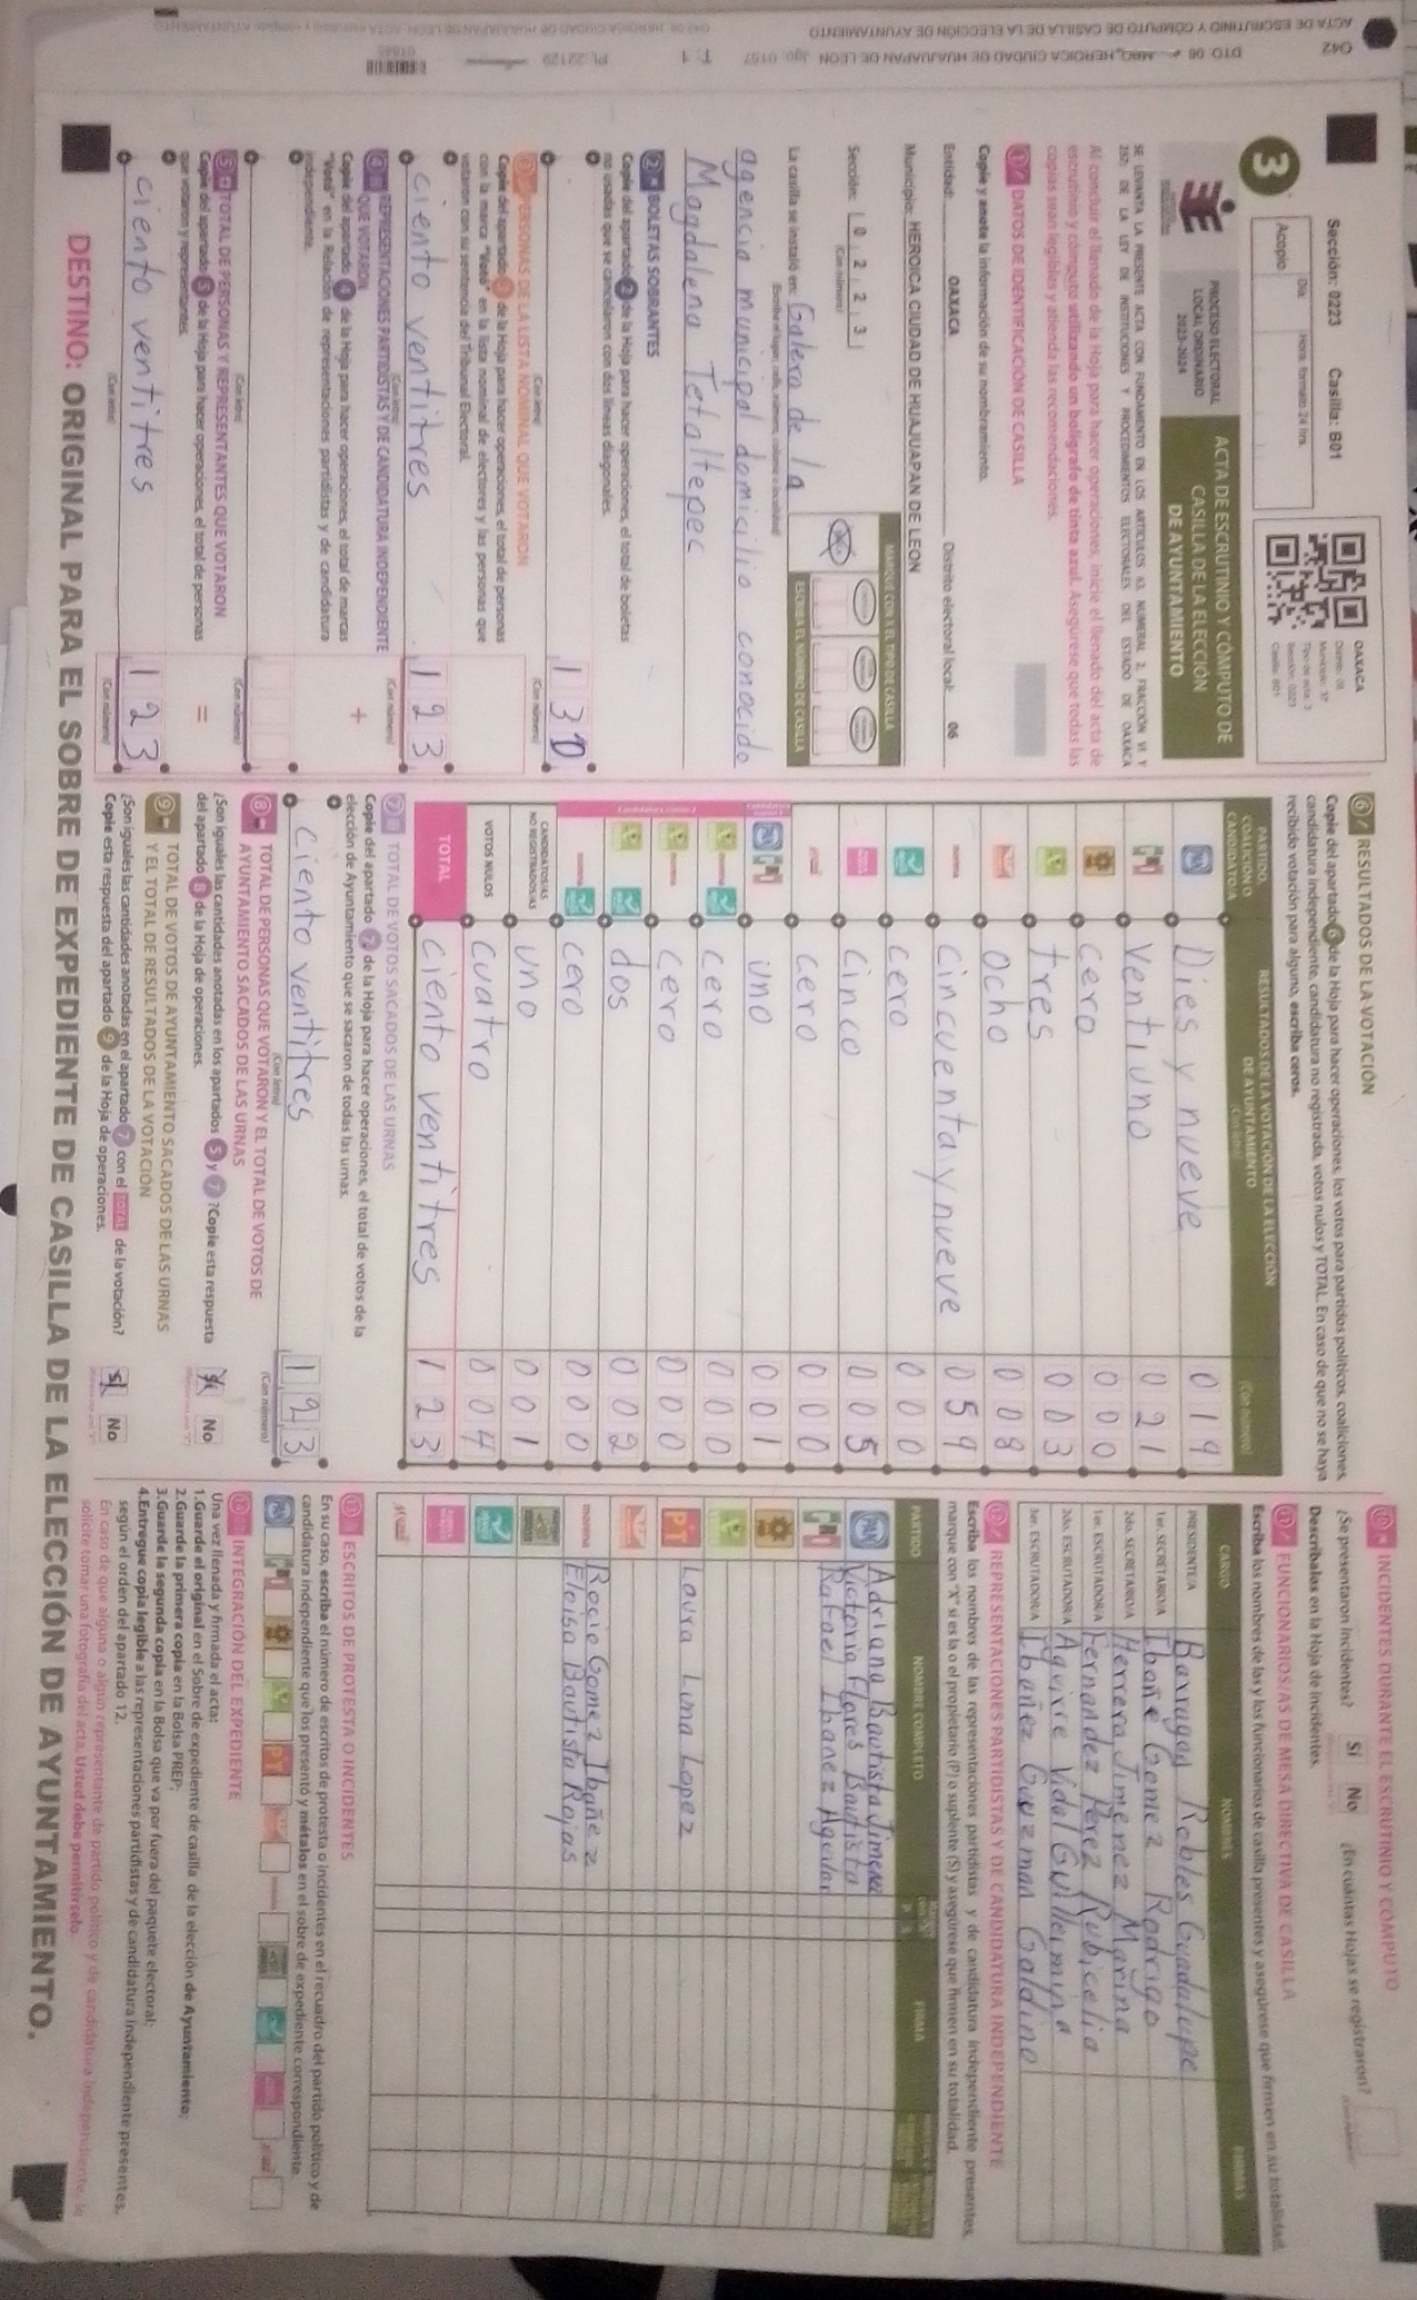 Sección: 0223 Casilla: B01
3
Acopio
Día
Hora: formato 24 hrs.
OAXACA
PROCESO ELECTORAL
LOCAL ORDINARIO
2023-2024
ACTA DE ESCRUTINIO Y CÓMPUTO DE
CASILLA DE LA ELECCIÓN
DE AYUNTAMIENTO
SE LEVANTA LA PRESENTE ACTA CON FUNDAMENTO EN LOS ARTÍCULOS 63, NUMERAL 2, FRACCIÓN VI Y
257; DE LA LEY DE INSTITUCIONES Y PROCEDIMIENTOS ELECTORALES DEL ESTADO DE OAXACA
Al concluir el llenado de la Hoja para hacer operaciones, inicie el llenado del acta de
escrutinio y cómputo utilizando un bolígrafo de tinta azul. Asegúrese que todas las
copias sean legibles y atienda las recomendaciones.
1 DATOS DE IDENTIFICACIÓN DE CASILLA
Copie y anote la información de su nombramiento.
Entidad: OAXACA Distrito electoral local: 06
Municipio: HEROICA CIUDAD DE HUAJUAPAN DE LEON
Sección: 0 2 2 3
(Con número)
MARQUE CON X EL TIPO DE CASILLA
ESCRIBA EL NÚMERO DE CASILLA
La casilla se instaló en: Galera de la
agencia municipal domicilio conocido
Magdalena Tetaltepec
2 BOLETAS SOBRANTES
Copie del apartado 2 de la Hoja para hacer operaciones, el total de boletas
no usadas que se cancelaron con dos líneas diagonales.
130
(Con letra) (Con número)
3 PERSONAS DE LA LISTA NOMINAL QUE VOTARON
Copie del apartado 3 de la Hoja para hacer operaciones, el total de personas
con la marca "Votó" en la lista nominal de electores y las personas que
votaron con su sentencia del Tribunal Electoral.
ciento ventitres 123
(Con letra) (Con número)
4 REPRESENTACIONES PARTIDISTAS Y DE CANDIDATURA INDEPENDIENTE
QUE VOTARON
Copie del apartado 4 de la Hoja para hacer operaciones, el total de marcas
"Votó" en la Relación de representaciones partidistas y de candidatura
independiente.
+
(Con letra) (Con número)
5 TOTAL DE PERSONAS Y REPRESENTANTES QUE VOTARON
Copie del apartado 5 de la Hoja para hacer operaciones, el total de personas
que votaron y representantes.
=
ciento ventitres 123
(Con letra) (Con número)
6 RESULTADOS DE LA VOTACIÓN
Copie del apartado 6 de la Hoja para hacer operaciones, los votos para partidos políticos, coaliciones,
candidatura independiente, candidatura no registrada, votos nulos y TOTAL. En caso de que no se haya
recibido votación para alguno, escriba ceros.
PARTIDO,
COALICIÓN O
CANDIDATO/A
RESULTADOS DE LA VOTACIÓN DE LA ELECCIÓN
DE AYUNTAMIENTO
(Con letra) (Con número)
PAN Dies y nueve 019
Ventiuno 021
cero 000
tres 003
ocho 008
morena cincuenta y nueve 059
cero 000
cinco 005
cero 000
uno 001
cero 000
cero 000
dos 002
cero 000
CANDIDATOS/AS
NO REGISTRADOS/AS uno 001
VOTOS NULOS cuatro 004
TOTAL ciento ventitres 123
7 TOTAL DE VOTOS SACADOS DE LAS URNAS
Copie del apartado 7 de la Hoja para hacer operaciones, el total de votos de la
elección de Ayuntamiento que se sacaron de todas las urnas.
ciento ventitres 123
(Con letra) (Con número)
8 TOTAL DE PERSONAS QUE VOTARON Y EL TOTAL DE VOTOS DE
AYUNTAMIENTO SACADOS DE LAS URNAS
¿Son iguales las cantidades anotadas en los apartados 5 y 7? Copie esta respuesta
del apartado 8 de la Hoja de operaciones. Sí No
9 TOTAL DE VOTOS DE AYUNTAMIENTO SACADOS DE LAS URNAS
Y EL TOTAL DE RESULTADOS DE LA VOTACIÓN
¿Son iguales las cantidades anotadas en el apartado 7 con el TOTAL de la votación?
Copie esta respuesta del apartado 9 de la Hoja de operaciones. Sí No
10 INCIDENTES DURANTE EL ESCRUTINIO Y CÓMPUTO
¿Se presentaron incidentes? Sí No ¿En cuántas Hojas se registraron?
Descríbalas en la Hoja de incidentes.
11 FUNCIONARIOS/AS DE MESA DIRECTIVA DE CASILLA
Escriba los nombres de las y los funcionarios de casilla presentes y asegúrese que firmen en su totalidad.
CARGO NOMBRES FIRMAS
PRESIDENTE/A Barragan Robles Guadalupe
1er. SECRETARIO/A Ibañe Gomez Rodrigo
2do. SECRETARIO/A Herrera Jimenez Marina
1er. ESCRUTADOR/A Fernandez Perez Rubicelia
2do. ESCRUTADOR/A Aguirre Vidal Guillermina
3er. ESCRUTADOR/A Ibañez Guzman Galdino
12 REPRESENTACIONES PARTIDISTAS Y DE CANDIDATURA INDEPENDIENTE
Escriba los nombres de las representaciones partidistas y de candidatura independiente presentes,
marque con "X" si es la o el propietario (P) o suplente (S) y asegúrese que firmen en su totalidad.
PARTIDO NOMBRE COMPLETO FIRMA
PAN Adriana Bautista Jimenez
Victoria Flores Bautista
Rafael Ibanez Aguilar
PT Laura Luna Lopez
morena Rocio Gomez Ibañez
Eloisa Bautista Rojas
13 ESCRITOS DE PROTESTA O INCIDENTES
En su caso, escriba el número de escritos de protesta o incidentes en el recuadro del partido político y de
candidatura independiente que los presentó y métalos en el sobre de expediente correspondiente.
14 INTEGRACIÓN DEL EXPEDIENTE
Una vez llenada y firmada el acta:
1.Guarde el original en el Sobre de expediente de casilla de la elección de Ayuntamiento;
2.Guarde la primera copia en la Bolsa PREP;
3.Guarde la segunda copia en la Bolsa que va por fuera del paquete electoral;
4.Entregue copia legible a las representaciones partidistas y de candidatura independiente presentes,
según el orden del apartado 12.
En caso de que alguna o algún representante de partido político y de candidatura independiente, le
solicite tomar una fotografía del acta. Usted debe permitírselo.
DESTINO: ORIGINAL PARA EL SOBRE DE EXPEDIENTE DE CASILLA DE LA ELECCIÓN DE AYUNTAMIENTO.
042 DTO 06 HEROICA CIUDAD DE HUAJUAPAN DE LEON
ACTA DE ESCRUTINIO Y CÓMPUTO DE CASILLA DE LA ELECCIÓN DE AYUNTAMIENTO